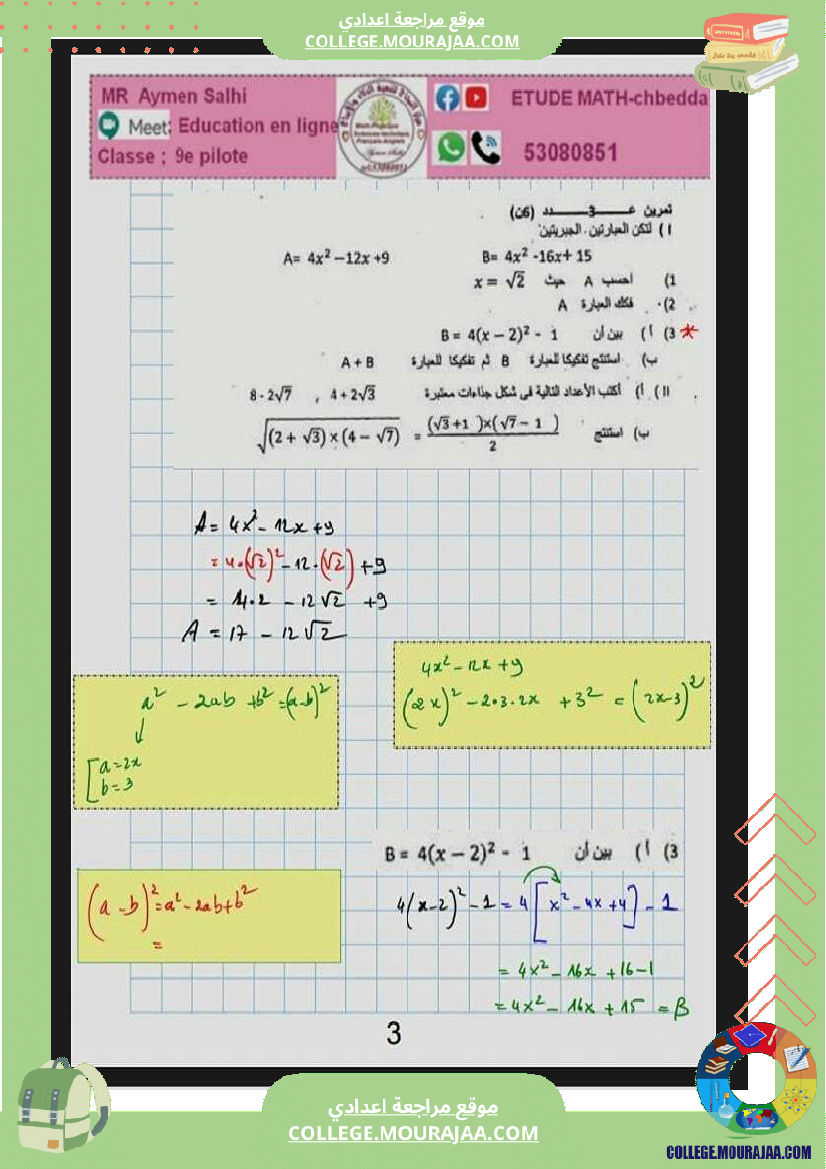 موقع مراجعة اعدادي
COLLEGE.MOURAJAA.COM
MR Aymen Salhi
Meet: Education en ligne
Classe : 9e pilote
ETUDE MATH-chbedda
53080851
تمرين عــــــ3ــــــدد (6ن)
I ) لتكن العبارتين الجبريتين
A= 4x² −12x +9 B= 4x² -16x+ 15
1) أحسب A حيث x = √2
2) فكك العبارة A
* 3) أ ) بين أن B = 4(x − 2)² - 1
ب) استنتج تفكيكا للعبارة B ثم تفكيكا للعبارة A + B
II ) أ) أكتب الأعداد التالية في شكل جذاءات معتبرة 4 + 2√3 , 8 - 2√7
ب) استنتج √((2 + √3) × (4 − √7)) = ((√3+1 )×(√7 − 1 ))/2
A = 4x² - 12x + 9
= 4·(√2)² - 12·(√2) + 9
= 4·2 - 12√2 + 9
A = 17 - 12√2
4x² - 12x + 9
(2x)² - 2·3·2x + 3² = (2x-3)²
a² - 2ab + b² = (a-b)²
↓
a = 2x
b = 3
3) أ ) بين أن B = 4(x − 2)² - 1
(a - b)² = a² - 2ab + b²
=
4(x-2)² - 1 = 4[x² - 4x + 4] - 1
= 4x² - 16x + 16 - 1
= 4x² - 16x + 15 = B
3
موقع مراجعة اعدادي
COLLEGE.MOURAJAA.COM
COLLEGE.MOURAJAA.COM